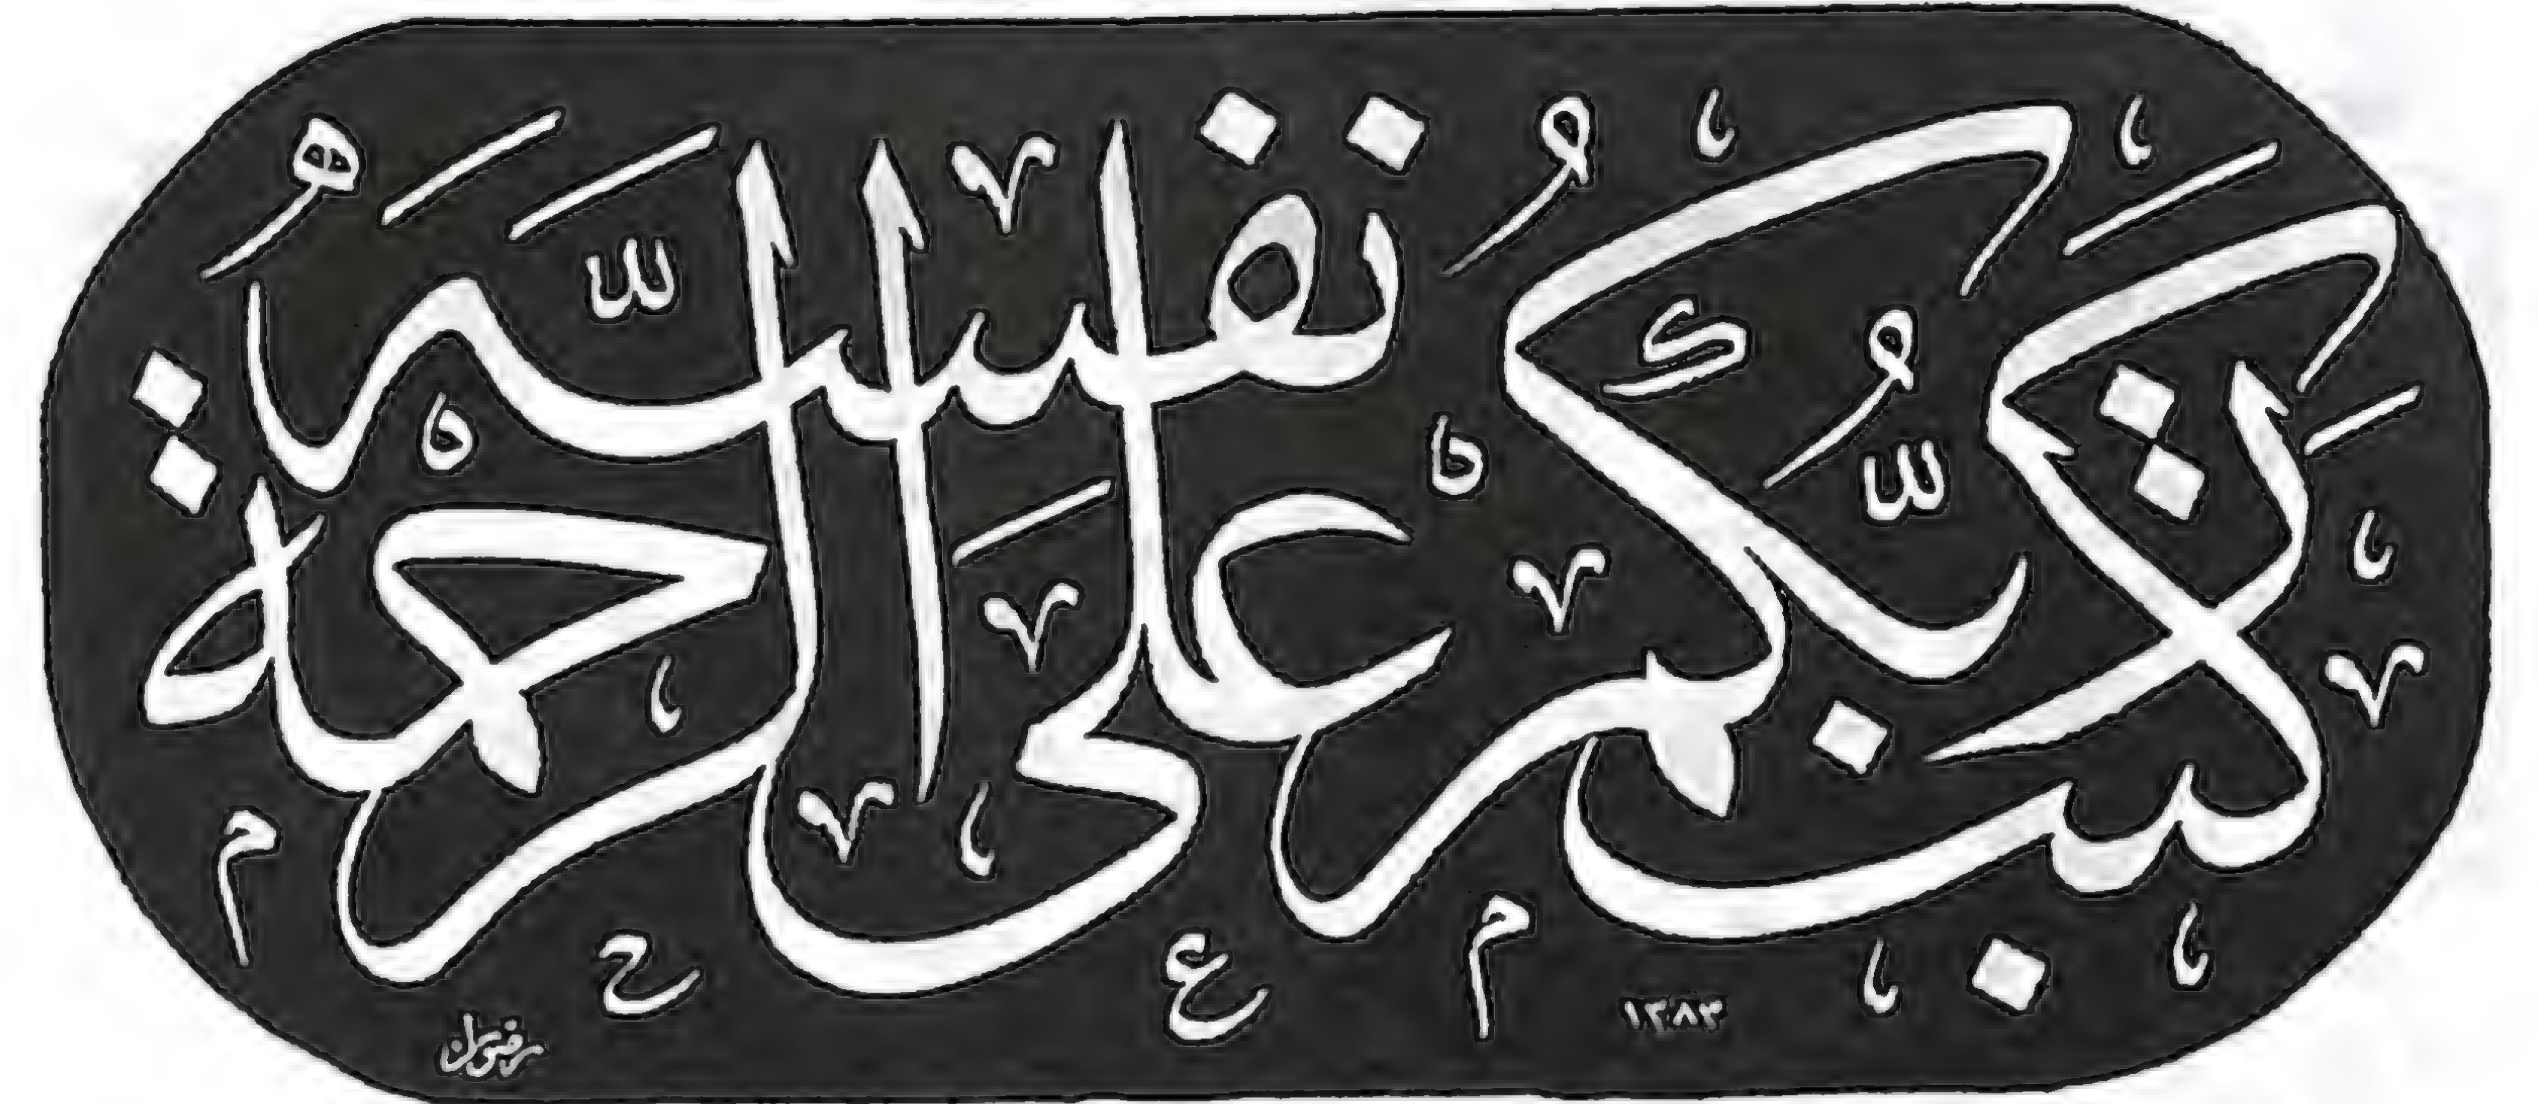 كَتَبَ رَبُّكُمْ عَلَى نَفْسِهِ الرَّحْمَةَ
١٣٨٣